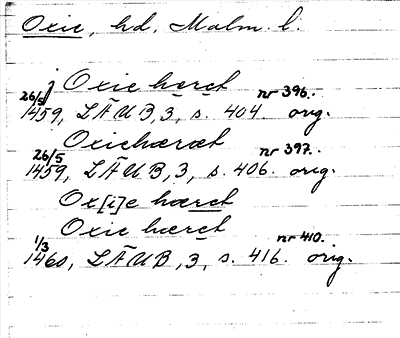 Oxie, hd, Malm. l.
j Oxie hæret nr 396.
26/5 1459, LÄUB, 3, s. 404. orig.
Oxiehæræt nr 397.
26/5 1459, LÄUB, 3, s. 406. orig.
Ox[i]e hæret
Oxie hæret nr 410.
1/3 1460, LÄUB, 3, s. 416. orig.